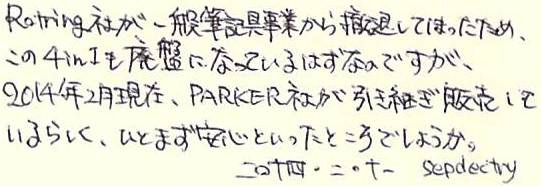 Rotring社が一般筆記具事業から撤退してしまったため、
この4in1も廃盤になっているはずなのですが、
2014年2月現在、PARKER社が引き継ぎ販売して
いるらしく、ひとまず安心といったところでしょうか。
二〇十四・二・十一 sepdectry